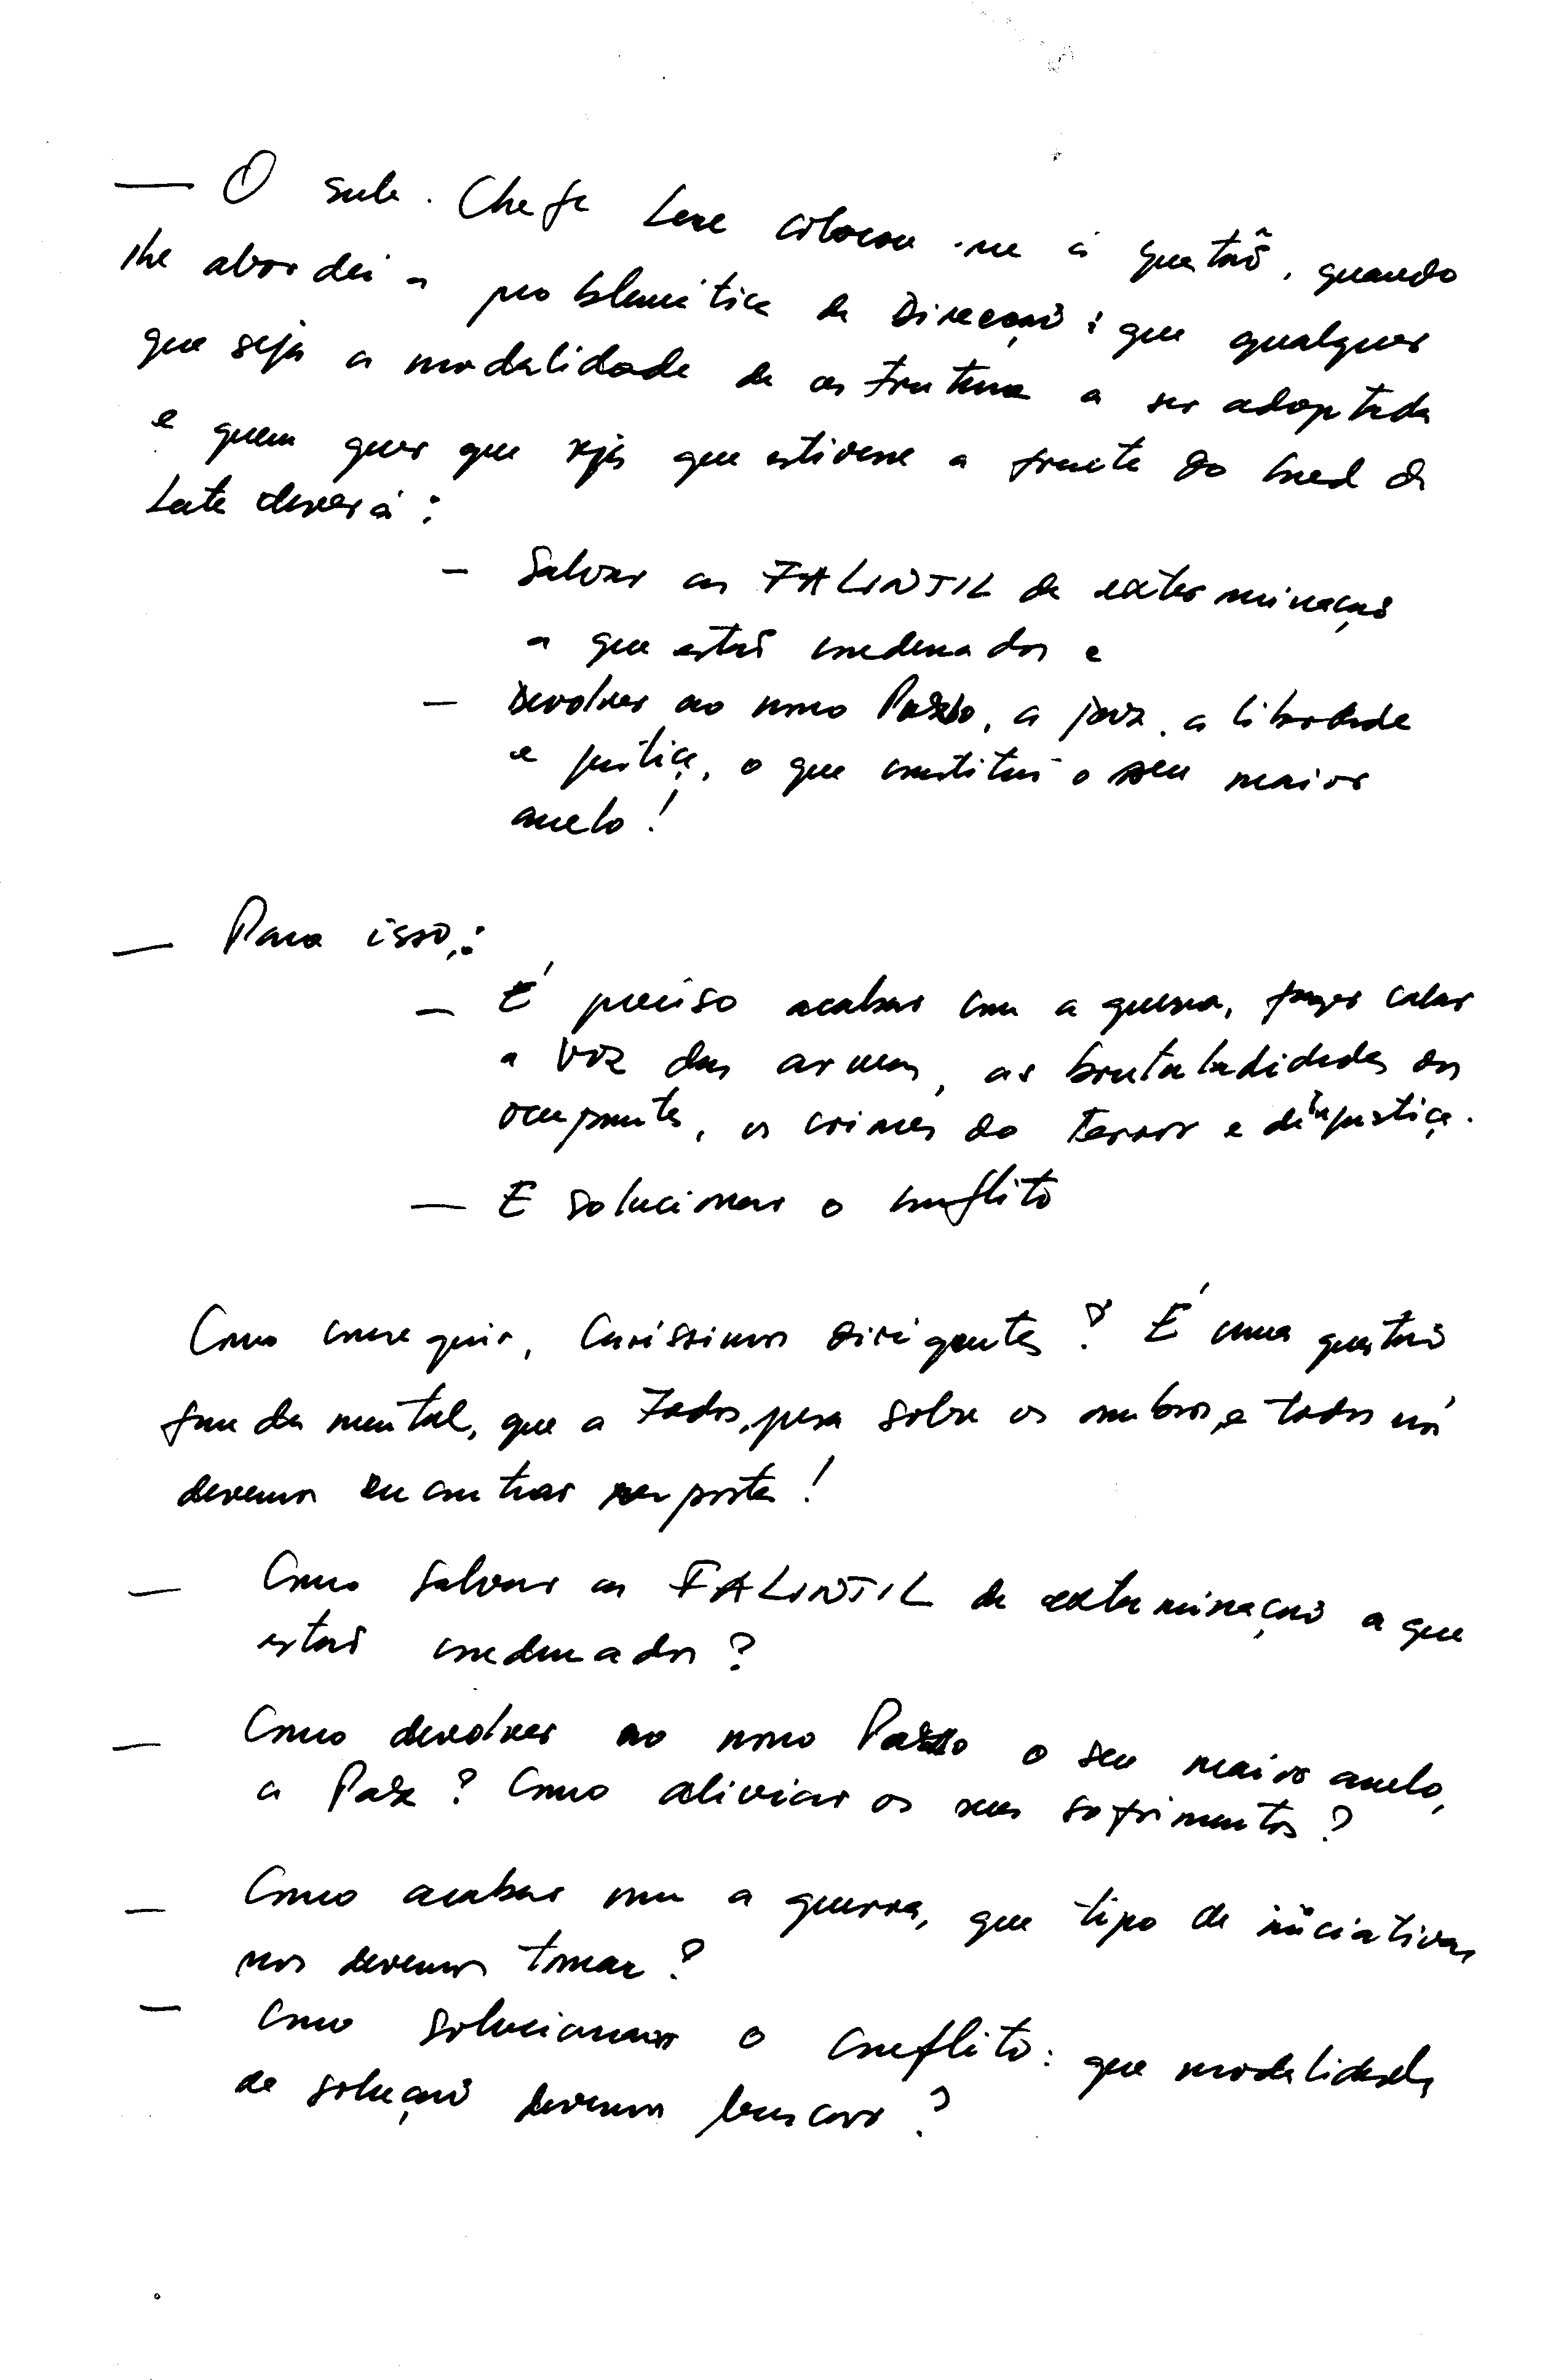 — O sub. Chefe Lere colocou-me a questão, quando
lhe abordei a problemática da Direcção: que qualquer
que seja a modalidade da estrutura a ser adoptada
e quem quer que seja que estivesse a frente do Cmd da
Luta deverá:
- Salvar as FALINTIL da exterminação
a que estão condenados e
- Devolver ao nosso Povo, a paz, a liberdade
e justiça, o que constitui o seu maior
anelo!
— Para isso:
- É preciso acabar com a guerra, fazer calar
a voz das armas, as brutalidades dos
ocupantes, os crimes do terror e da injustiça.
— E solucionar o conflito
Como conseguir, Caríssimos Dirigentes? É uma questão
fundamental, que a Todos, pesa sobre os ombros, e todos nós
devemos encontrar resposta!
— Como salvar as FALINTIL da exterminação a que
estão condenados?
— Como devolver ao nosso Povo o seu maior anelo,
a Paz? Como aliviar os seus sofrimentos?
— Como acabar com a guerra, que tipo de iniciativas
nós devemos tomar?
— Como solucionar o conflito: que modalidade
de solução devemos buscar?